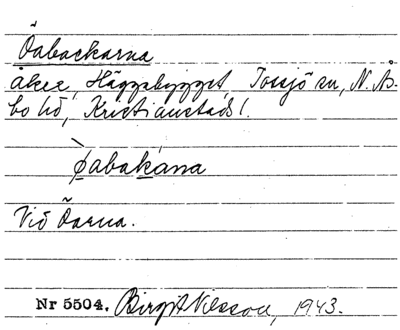 Öabackarna
åker, Häggabygget Tossjö sn, N. Ås-
bo hd, Kristianstads l.
ǿabakána
Vid Öarna.
Nr 5504. Birgit Nilsson, 1943.